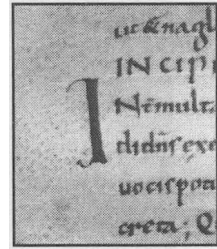 ut & nagl
INCIPI
I
Nēmult
tlidn̄sexe
uocispota
creta; Q